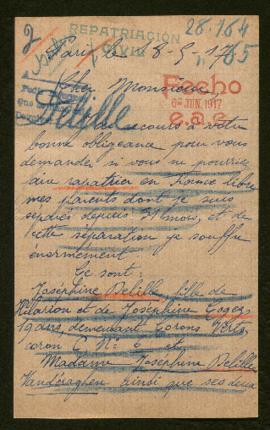 2
REPATRIATION
CIVIL
28.164
165
Paris le 18-5-17
Cher Monsieur
Fecho
6 JUN. 1917
e.a.s
Delille
recours à votre
bonne obligeance pour vous
demander si vous ne pourriez
faire rapatrier en France libre
mes parents dont je suis
séparé depuis mois, et de
cette séparation je souffre
énormément.
Ce sont:
Joséphine Delille fille de
Hilarion et de Joséphine
19 ans, demeurant Corons Verts
coron C No 6 et
Madame Joséphine Delille
Vanderaghen ainsi que ses deux